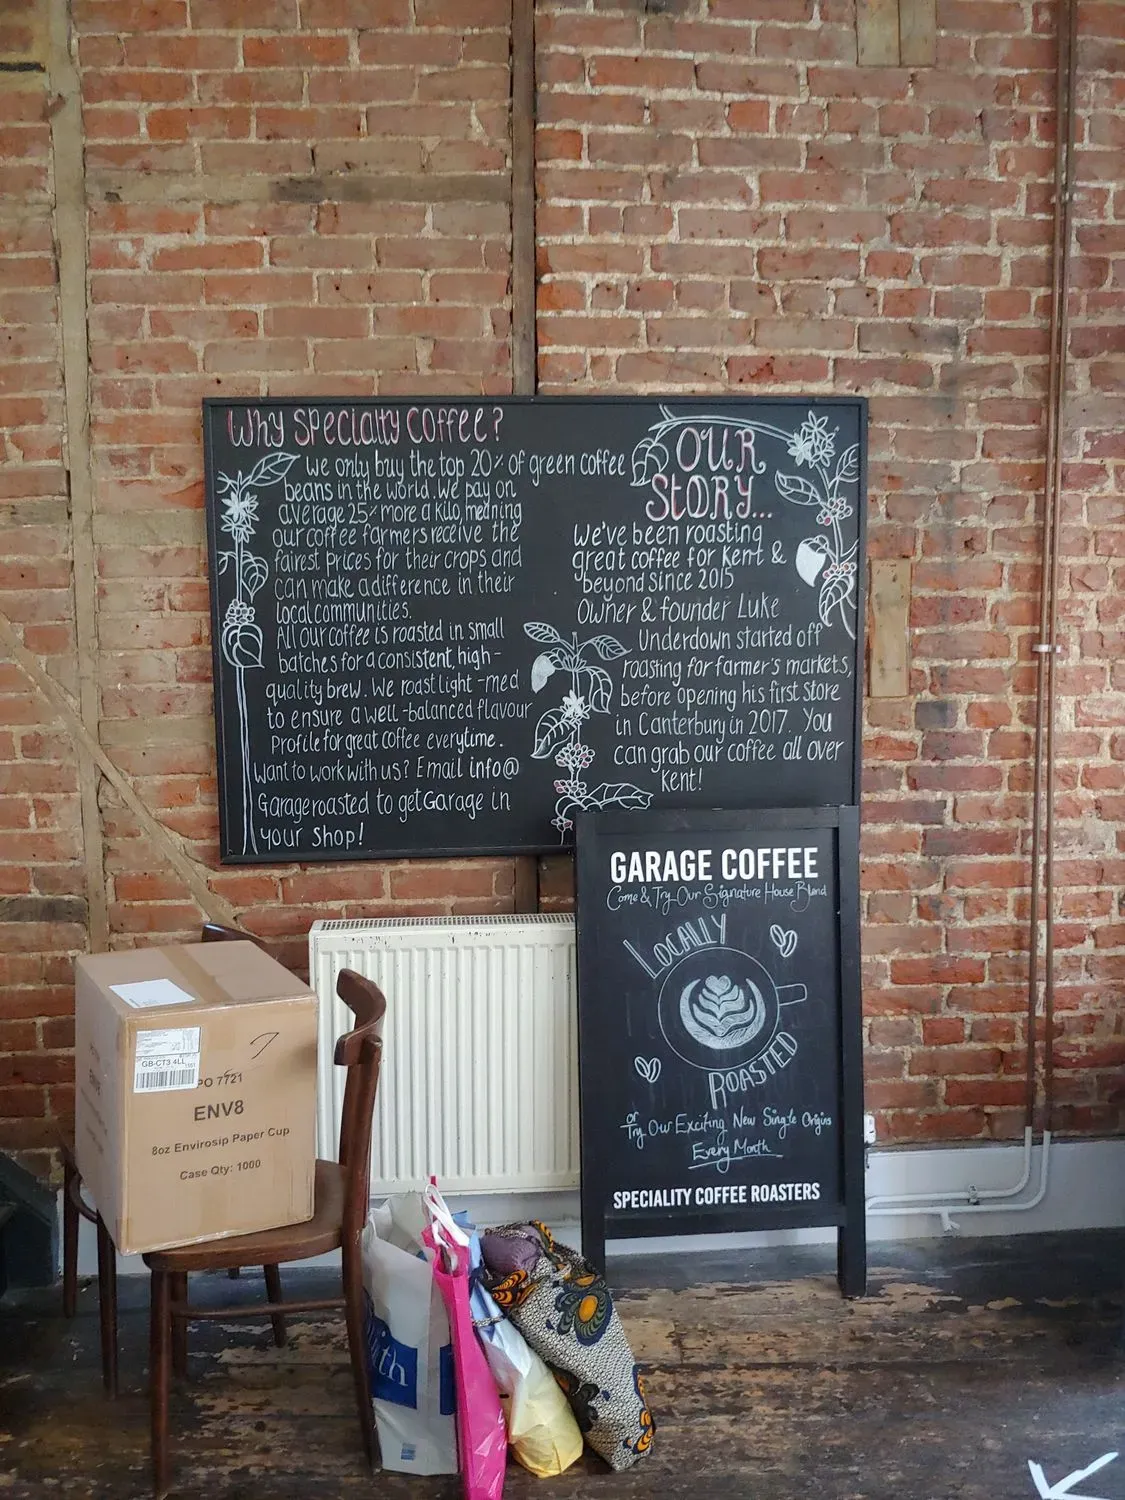 Why Specialty Coffee?
We only buy the top 20% of green coffee
beans in the world. We pay on
average 25% more a kilo, meaning
our coffee farmers receive the
fairest prices for their crops and
can make a difference in their
local communities.
All our coffee is roasted in small
batches for a consistent, high-
quality brew. We roast light-med
to ensure a well-balanced flavour
profile for great coffee everytime.
Want to work with us? Email info@
Garageroasted to get Garage in
your shop!
OUR
STORY...
We've been roasting
great coffee for Kent &
beyond since 2015
Owner & founder Luke
Underdown started off
roasting for farmer's markets,
before opening his first store
in Canterbury in 2017. You
can grab our coffee all over
Kent!
GARAGE COFFEE
Come & Try Our Signature House Blend
LOCALLY
ROASTED
or
Try Our Exciting New Single Origins
Every Month
SPECIALITY COFFEE ROASTERS
GB-CT3 4LL
PO 7721
ENV8
8oz Envirosip Paper Cup
Case Qty: 1000